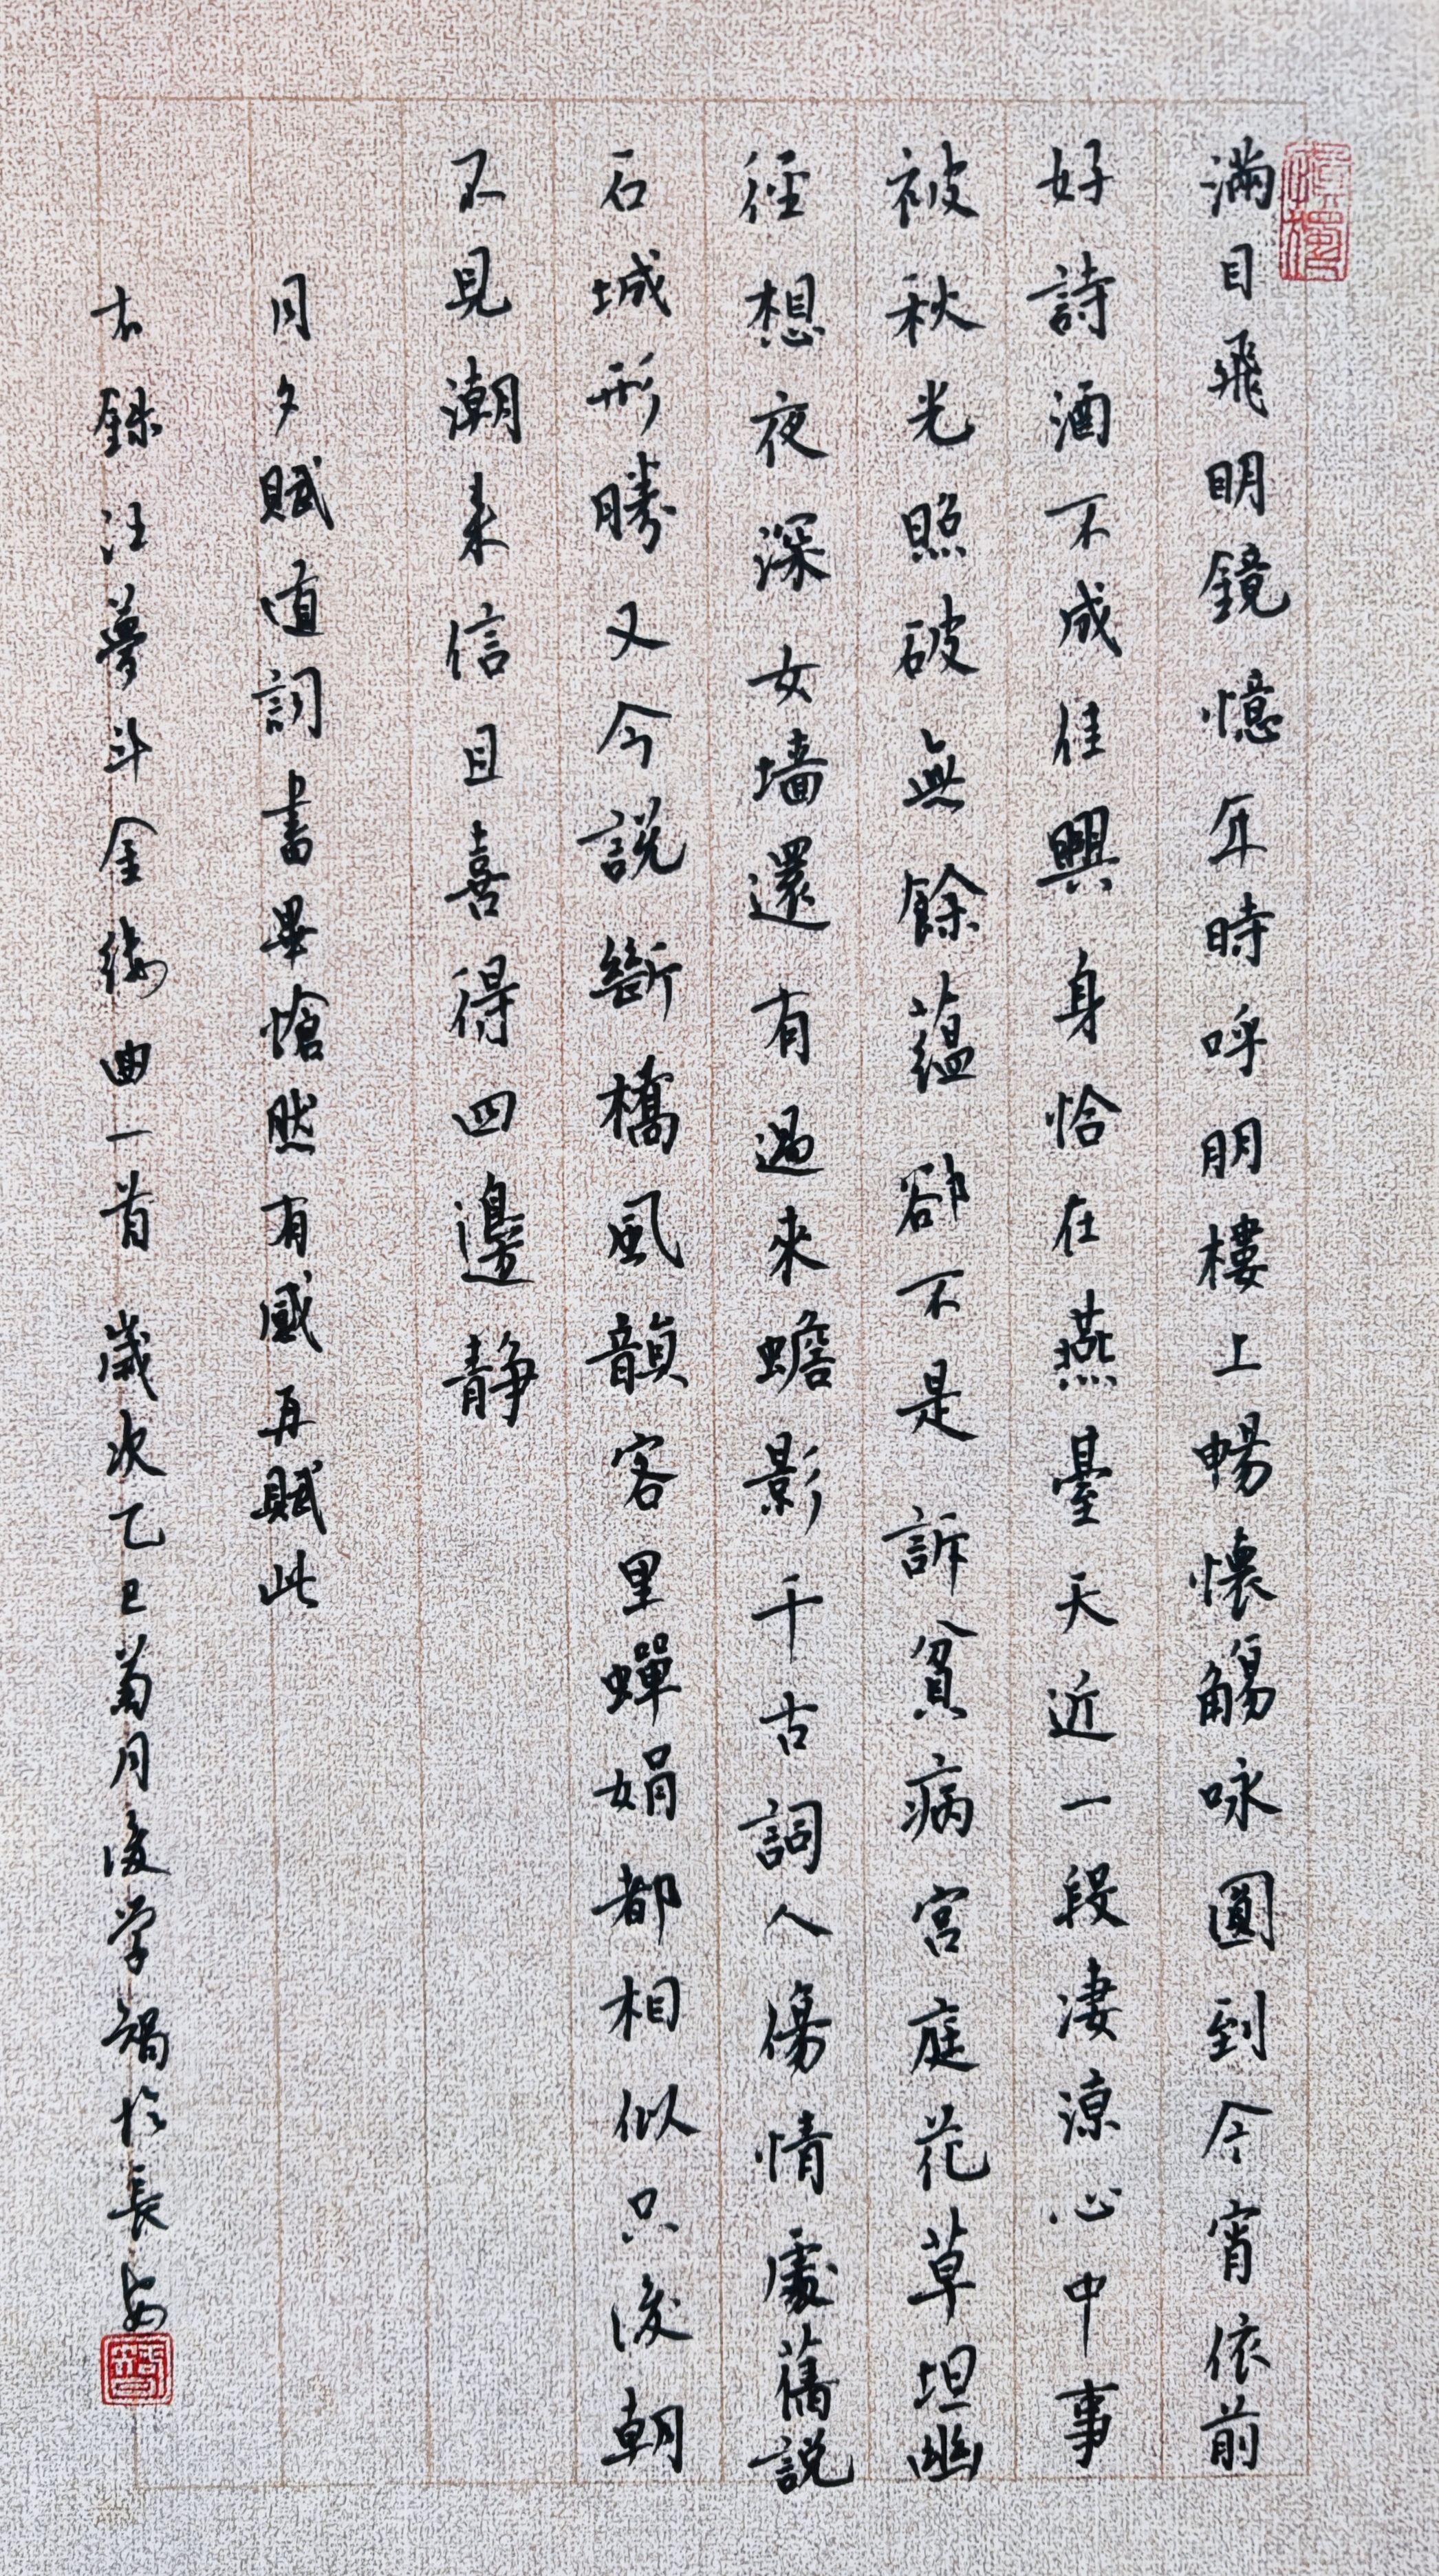 滿目飛明鏡憶年時呼朋樓上暢懷觴咏圓到今宵依前
好詩酒不成佳興身恰在燕臺天近一段淒涼心中事
被秋光照破無餘蘊卻不是訴貧病宮庭花草坦幽
徑想夜深女墻還有過來蟾影千古詞人傷情處舊說
石城形勝又今說斷橋風韻客里蟬娟都相似只後朝
不見潮来信且喜得四邊靜
月夕賦直詞書畢愴然有感再賦此
右錄汪夢斗金縷曲一首歲次乙巳菊月後学於長安